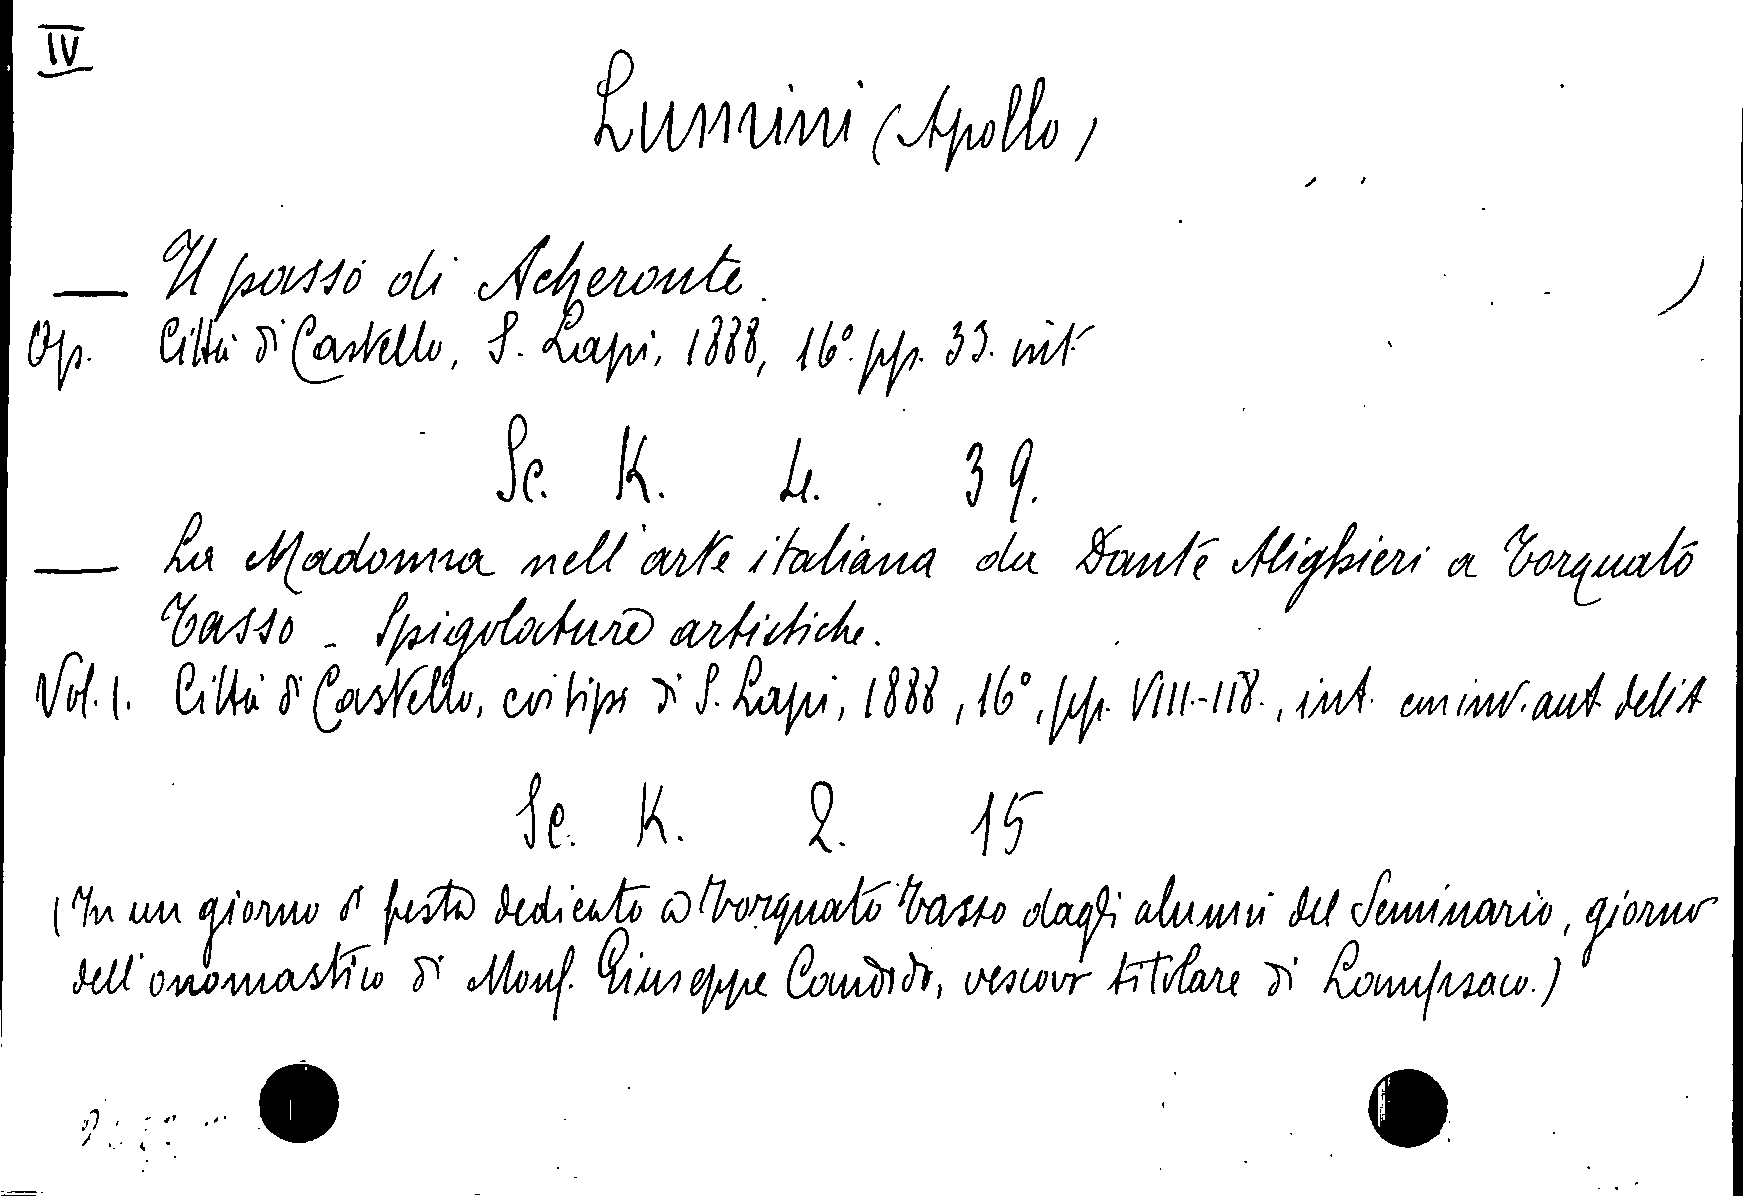 IV
Lumini (Apollo)
— Il passo di Acheronte.
Op. Città di Castello, S. Lapi, 1888, 16°. pp. 33. int.
Sc. K. 4. 39.
— La Madonna nell'arte italiana da Dante Alighieri a Torquato
Tasso - Spigolature artistiche.
Vol. 1. Città di Castello, coi tipi di S. Lapi, 1888, 16°, pp. VIII.-118., int. con inv. aut.
Sc. K. 2. 15
(In un giorno di festa dedicato a Torquato Tasso dagli alunni del Seminario, giorno
dell'onomastico di Mons. Giuseppe Candido, vescovo titolare di Lampsaco.)